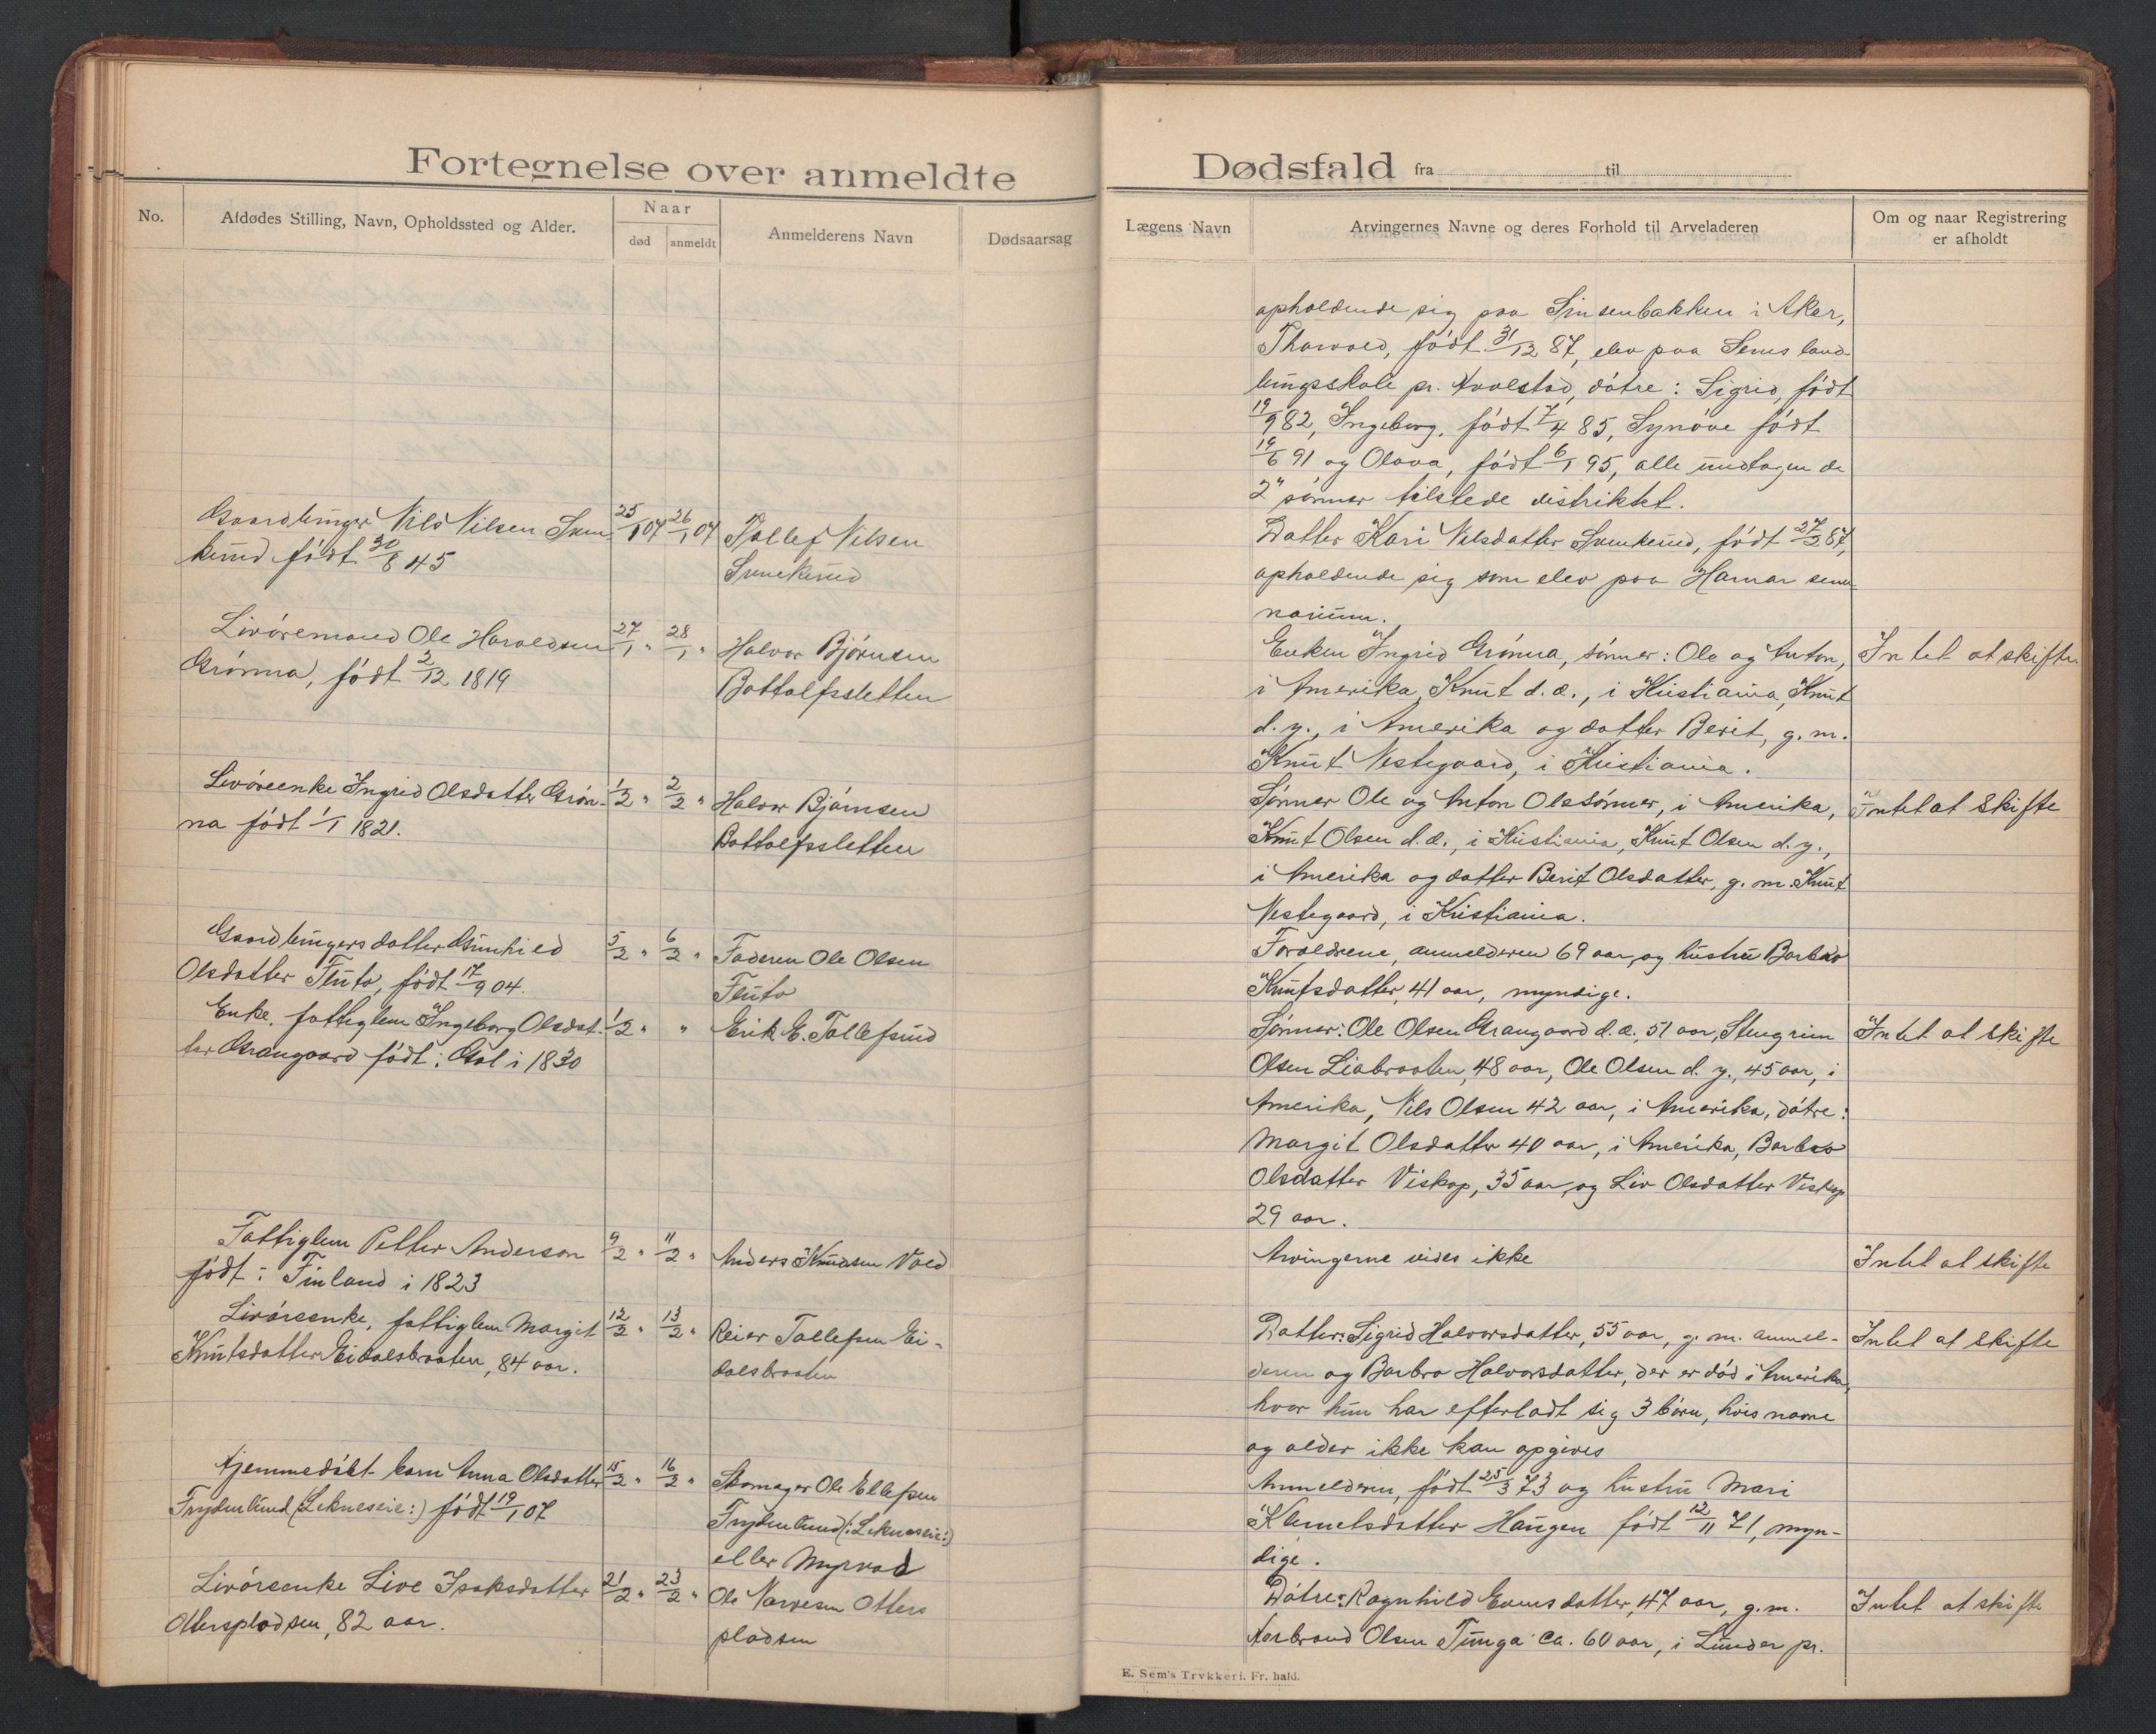 Fortegnelse over anmeldte
No.
Afdødes Stilling, Navn, Opholdssted og Alder.
Naar
død
anmeldt
Anmelderens Navn
Dødsaarsag
Gaardbruger Nils Nilsen
kerud født 30/8 45
25/1 07
26/1 07
Tollef Nilsen
Svenkerud
Livöremand Ole Haraldsen
Grönna, födt 2/12 1819
27/1 "
28/1 "
Halvor Björnsen
Bottolfssletten
Livöreenke Ingrid Olsdatter Grön-
na født 1/1 1821.
1/2 "
2/2 "
Halvor Björnsen
Bottolfssletten
Gaardbrugers datter Gunhild
Olsdatter Fluto, født 17/9 04.
5/2 "
6/2 "
Faderen Ole Olsen
Fluto
Enke, fattiglem Ingeborg Olsdat-
ter Grangaard født i Gol i 1830
1/2 "
"
Erik E. Tollefsrud
Fattiglem Petter Anderson
født i Finland i 1823
9/2 "
11/2 "
Anders Knudsen Vold
Livöreenke, fattiglem Margit
Knutsdatter Eidalsbraaten, 84 aar.
12/2 "
13/2 "
Reier Tollefsen Ei-
dalsbraaten
Hjemmedöbt barn Anna Olsdatter
Frydenlund (Lekneseie:) født 19/1 07
15/2 "
16/2 "
Skomager Ole Ellefsen
Frydenlund (: Lekneseie:)
eller Myrvod
Livöreenke Live Isaksdatter
Otterspladsen, 82 aar.
21/2 "
23/2 "
Ole Narvesen Otters
pladsen
Dødsfald fra til
Lægens Navn
Arvingernes Navne og deres Forhold til Arveladeren
Om og naar Registrering
er afholdt
opholdende sig paa Sinsenbakken i Aker,
Thorvald, født 31/12 87, elev paa Sems land
brugsskole pr. Hvalstad, döttre: Sigrid, født
19/9 82, Ingeborg, født 7/4 85, Synöve født
19/6 91 og Olava, født 6/1 95, alle undtagen de
2 sönner tilstede distriktet.
Datter Kari Nilsdatter Svenkerud, født 27/2 87,
opholdende sig som elev paa Hamar semi
narium.
Enken Ingrid Grönna, sönner: Ole og Anton,
i Amerika, Knut d.æ., i Kristiania, Knut
d. y., i Amerika og datter Berit, g. m.
Knut Vestegaard, i Kristiania.
Intet at skifte.
Sönner Ole og Anton Olssönner, i Amerika,
Knut Olsen d.æ., i Kristiania, Knut Olsen d. y.,
i Amerika og datter Berit Olsdatter, g. m. Knut
Vestegaard, i Kristiania.
Intet at skifte
Forældrene, anmelderen 69 aar, og hustru Barbro
Knutsdatter, 41 aar, myndige.
Sönner: Ole Olsen Grangaard d.æ, 51 aar, Stengrim
Olsen Liabraaten, 48 aar, Ole Olsen d. y., 45 aar, i
Amerika, Nils Olsen 42 aar, i Amerika, dötre:
Margit Olsdatter 40 aar, i Amerika, Barbro
Olsdatter Viskop, 35 aar, og Liv Olsdatter Viskop
29 aar.
Intet at skifte
Arvingerne vides ikke
Intet at skifte
Datter: Sigrid Halvorsdatter, 55 aar, g. m. anmel-
deren og Barbro Halvorsdatter, der er död i Amerika,
hvor hun har efterladt sig 3 börn, hvis navne
og alder ikke kan opgives
Intet at skifte
Anmelderen, født 25/3 73 og hustru Mari
Klemetsdatter Haugen født 12/11 71, myn-
dige.
Dötre: Ragnhild Evensdatter, 47 aar, g. m.
Asbrand Olsen Tunga ca. 60 aar, i Lunder pr.
Intet at skifte
E. Sem's Trykkeri. Fr. hald.